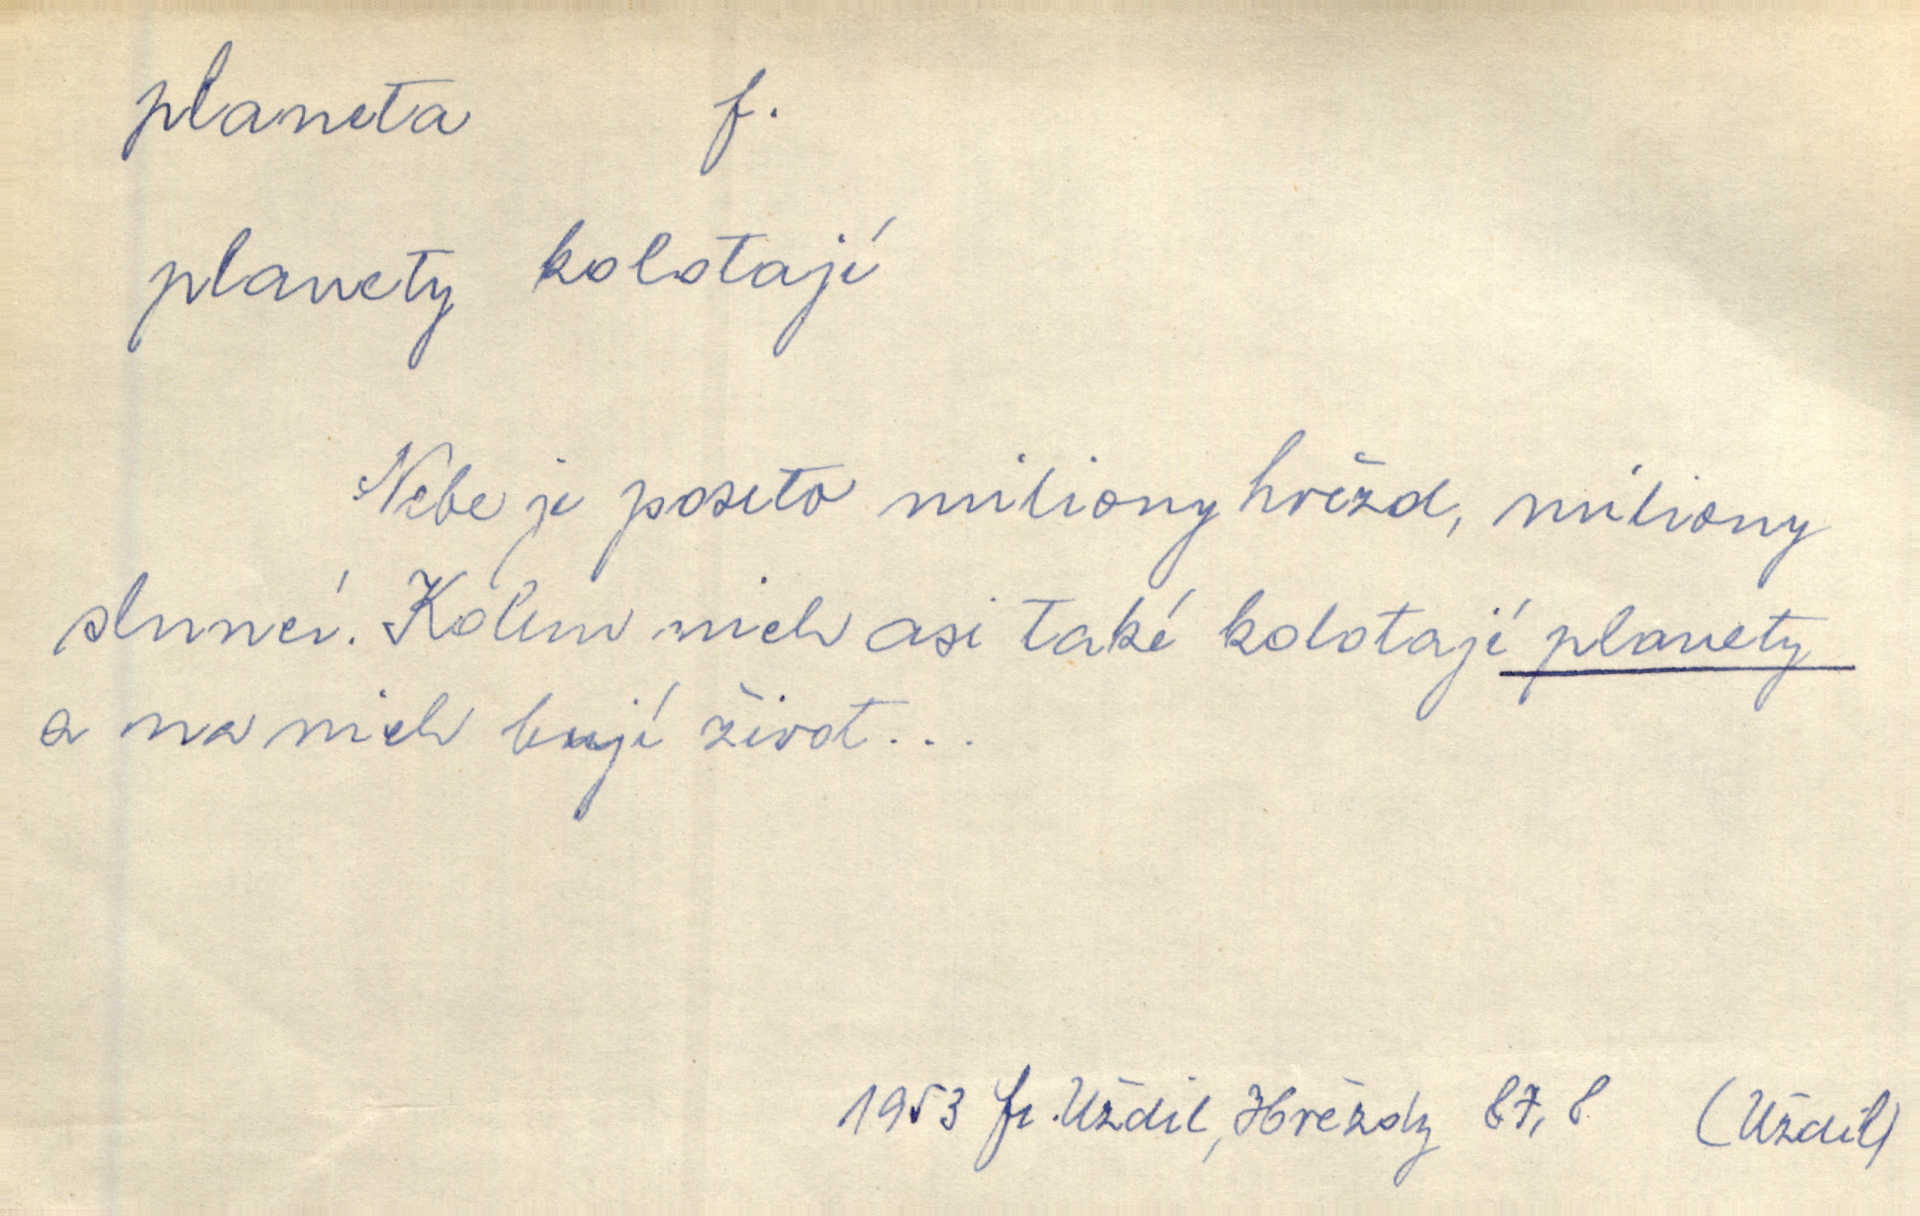 planeta f.
planety kolotají
Nebe je poseto miliony hvězd, miliony
sluncí. Kolem nich asi také kolotají planety
a na nich bují život...
1953 Fr. Uždil, Hvězdy 87, 8 (Uždil)